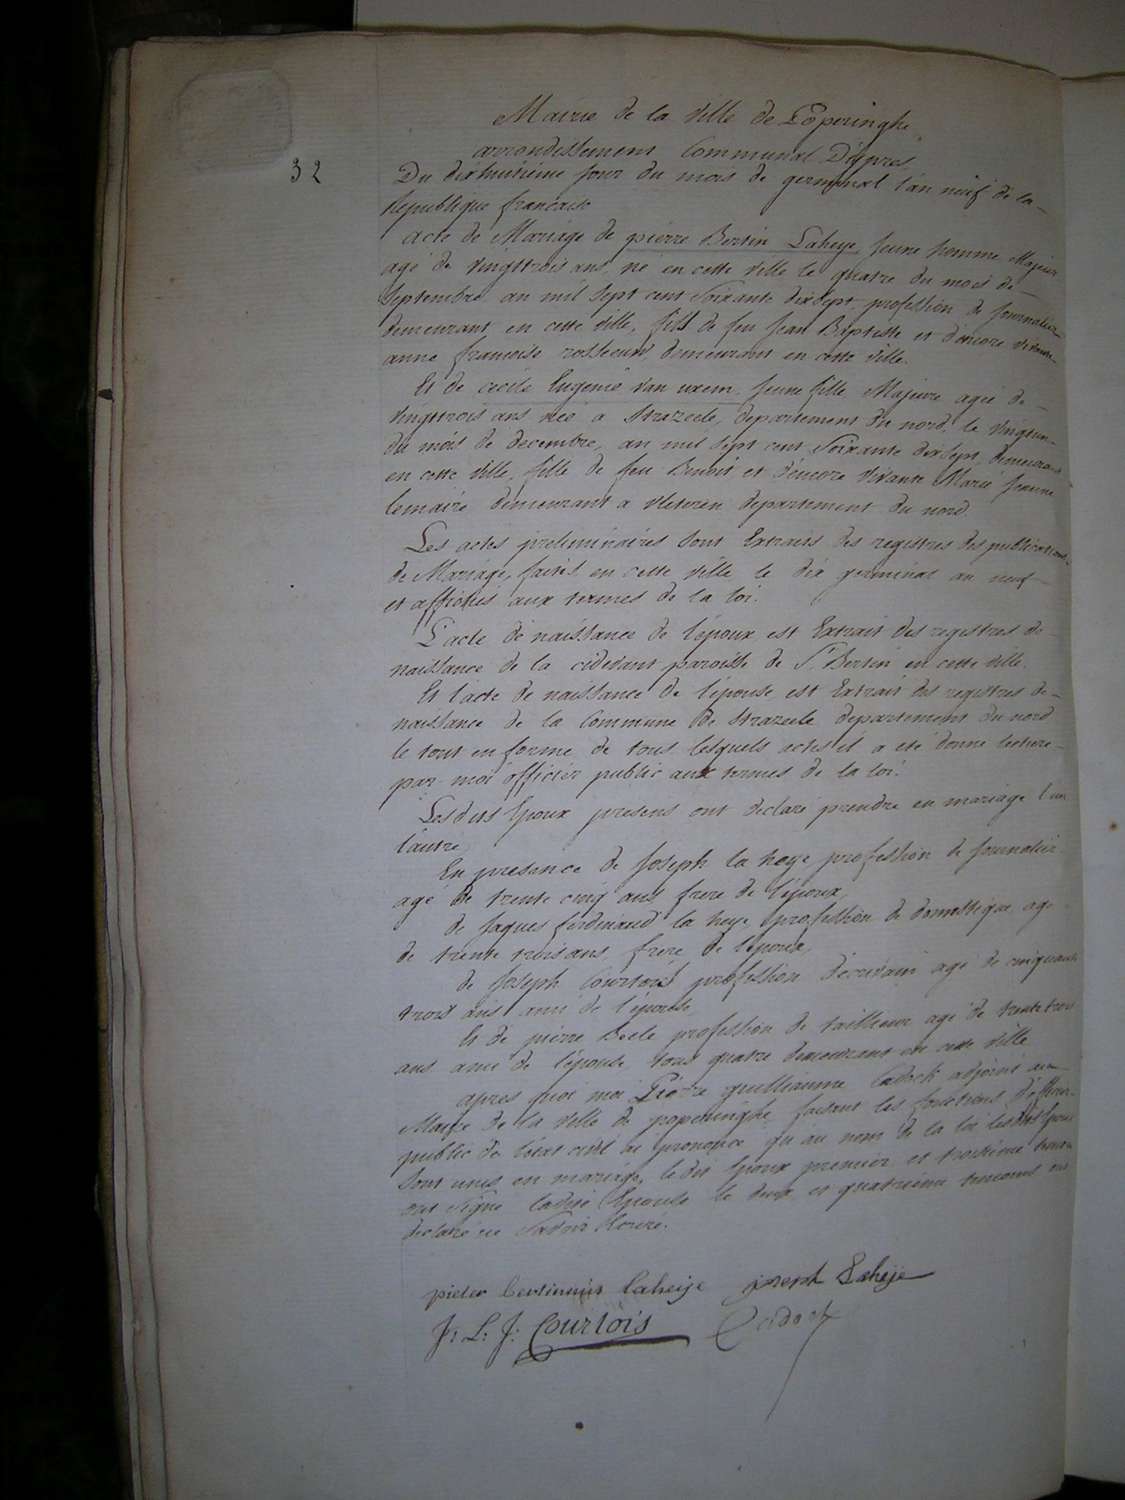 Mairie de la ville de Poperinghe
arrondissement Communal D'ipres
32
Du dixhuitieme jour du mois de germinal l'an neuf de la
republique francaise
acte de Mariage de pierre Bertin Laheye jeune homme Majeur
agé de vingttrois ans, né en cette ville le quatre du mois de
Septembre an mil sept cent Soixante dixsept profession de journalier
demeurant en cette ville, fils de feu Jean Baptiste et d'encore vivante
anne francoise demeurant en cette ville.
Et de cecile Eugenie van uxem jeune fille Majeure agée de
vingttrois ans née a Strazeele, departement du nord, le vingtun
du mois de decembre, an mil sept cent Soixante dixsept, demeurant
en cette ville, fille de feu Benoit et d'encore vivante Marie Jeanne
lemaire demeurant a vleteren departement du nord.
Les actes preliminaires sont Extraits des registres des publications
de Mariage, faites en cette ville le dix germinal an neuf
et affichés aux termes de la loi.
L'acte de naissance de l'époux est Extrait des registres de
naissance de la cidevant paroisse de St Bertin en cette ville.
Et l'acte de naissance de l'épouse est Extrait des registres de
naissance de la Commune de Strazeele departement du nord
le tout en forme, de tous lesquels actes il a eté donné lecture
par moi officier public aux termes de la loi.
Lesdits Epoux presens ont declaré prendre en mariage l'un
l'autre
En presence de Joseph la heye profession de journalier
agé de trente cinq ans frere de l'époux,
de Jaques ferdinand la heye profession de domestique agé
de trente trois ans, frere de l'époux,
de Joseph Courtois profession d'ecrivain agé de cinquante
trois ans ami de l'épouse
Et de pierre Beele profession de tailleur agé de trente trois
ans ami de l'épouse, tous quatre demeurant en cette ville
apres quoi moi Pierre guilliaume Cadock adjoint au
Maire de la ville de poperinghe faisant les fonctions d'officier
public de l'état civil ai prononcé qu'au nom de la loi lesdits Epoux
sont unis en mariage, ledit Epoux premier et troisieme temoin
ont signé ladite Epouse le deux et quatrieme temoins ont
declaré ne
pieter bertinus laheije joseph Laheije
J: L: J: Courtois Cadock